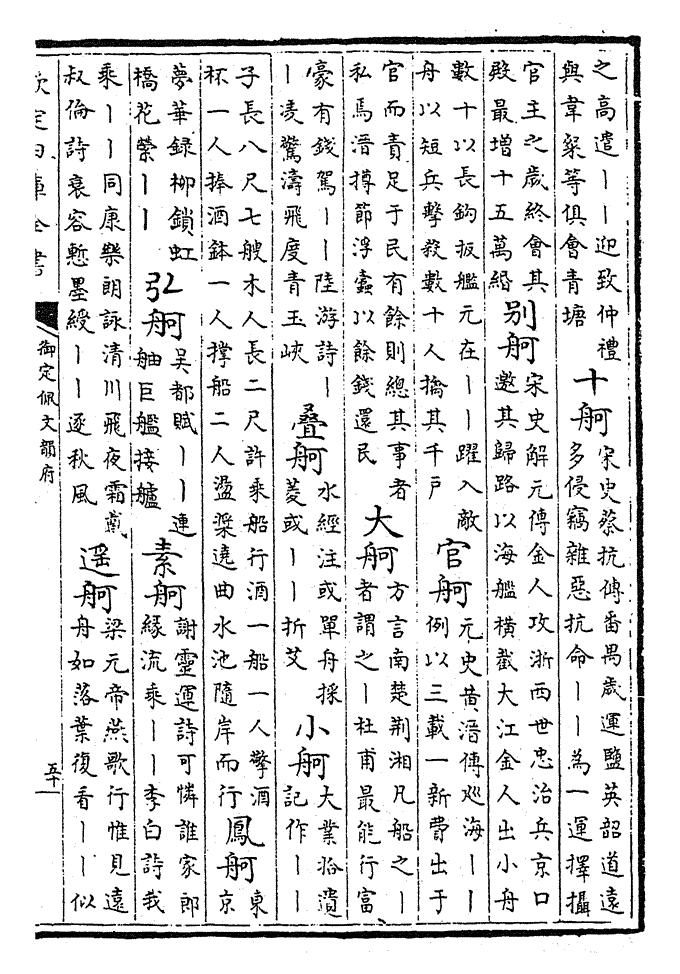 之高遣丨丨迎致仲禮
與韋粲等俱會青塘
十舸
宋史蔡抗傳番禺歲運鹽英韶道遠
多侵竊雜惡抗命丨丨為一運擇攝
官主之歲終會其
殿最增十五萬緡
別舸
宋史解元傳金人攻浙西世忠治兵京口
邀其歸路以海艦橫截大江金人出小舟
數十以長鈎扳艦元在丨丨躍入敵
舟以短兵擊殺數十人擒其千戶
官舸
元史黄溍傳巡海丨丨
例以三載一新費出于
官而責足于民有餘則總其事者
私焉溍撙節浮蠹以餘錢還民
大舸
方言南楚荆湘凡船之丨
者謂之丨杜甫最能行富
豪有錢駕丨丨陸游詩丨
丨凌驚濤飛度青玉峽
叠舸
水經注或單舟採
菱或丨丨折芰
小舸
大業拾遺
記作丨丨
子長八尺七艘木人長二尺許乘船行酒一船一人擎酒
杯一人捧酒鉢一人撑船二人盪槳遶曲水池隨岸而行
鳳舸
東
京
夢華録柳鎖虹
橋花縈丨丨
弘舸
吳都賦丨丨連
舳巨艦接艫
素舸
謝靈運詩可憐誰家郎
緣流乘丨丨李白詩我
乘丨丨同康樂朗詠清川飛夜霜戴
叔倫詩衰容慙墨綬丨丨逐秋風
遥舸
梁元帝燕歌行惟見遠
舟如落葉復看丨丨似
欽定四庫全書
御定佩文韻府
五十